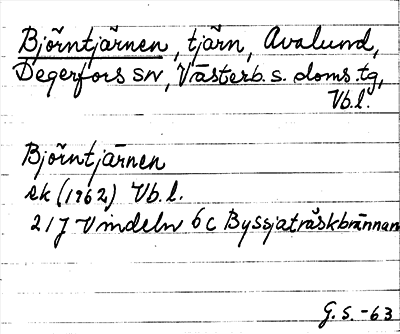 Björntjärnen, tjärn, Avalund,
Degerfors sn, Västerb. s. doms. tg,
Vb.l.
Björntjärnen
ek (1962) Vb.l.
21J Vindeln 6c Byssjaträskbrännan
G.S. -63